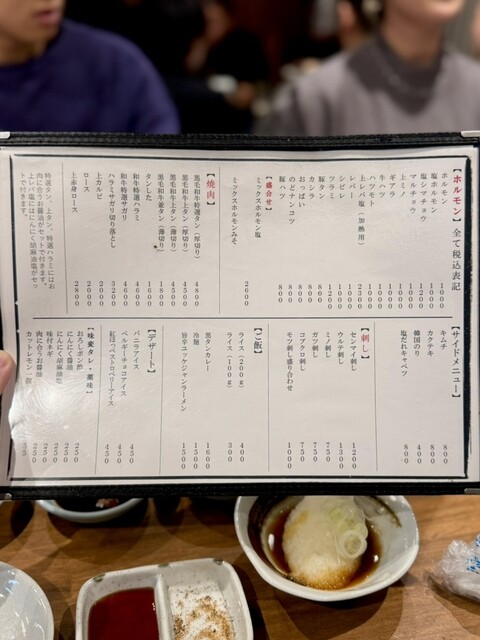 【ホルモン】全て税込表記
ホルモン
塩ホルモン
塩シマチョウ
マルチョウ
上ミノ
ギアラ
牛ハツ
ハツモト
上レバ塩（加熱用）
レバー
シビレ
ツラミ
豚タン 800
カシラ 800
おっぱい 800
のどナンコツ 800
豚ハツ 800
【盛合せ】
ミックスホルモン塩
ミックスホルモンみそ 2600
【焼肉】
黒毛和牛特選タン（厚切り） 4800
黒毛和牛上タン（厚切り） 4500
黒毛和牛上タン（薄切り）
黒毛和牛並タン（薄切り） 1800
タンした 1600
和牛特選ハラミ 4800
和牛特選サガリ 4000
ハラミサガリ切り落とし 3200
上カルビ 2800
ロース 2000
上赤身ロース 2800
特選タン、上タン、特選ハラミにはお
肉に合うお醤油がセットで付きます。
上レバ塩にはにんにく胡麻油塩がセッ
トで付きます。
【サイドメニュー】
キムチ 800
カクテキ 800
韓国のり 400
塩だれキャベツ 800
【刺し】
センマイ刺し 1200
ウルテ刺し 1300
ミノ刺し 750
ガツ刺し 750
コブクロ刺し 750
モツ刺し盛り合わせ 1000
【ご飯】
ライス（200g） 400
ライス（100g） 300
黒タンカレー 1600
冷麺 1500
旨辛ユッケジャンラーメン 1500
【デザート】
バニラアイス 450
ベルギーチョコアイス 450
紅ほっぺストロベリーアイス 450
【味変タレ・薬味】
おろしポン酢 250
にんにく醤油 250
にんにく胡麻油塩
味付ネギ 250
肉に合うお醤油 250
カットレモン